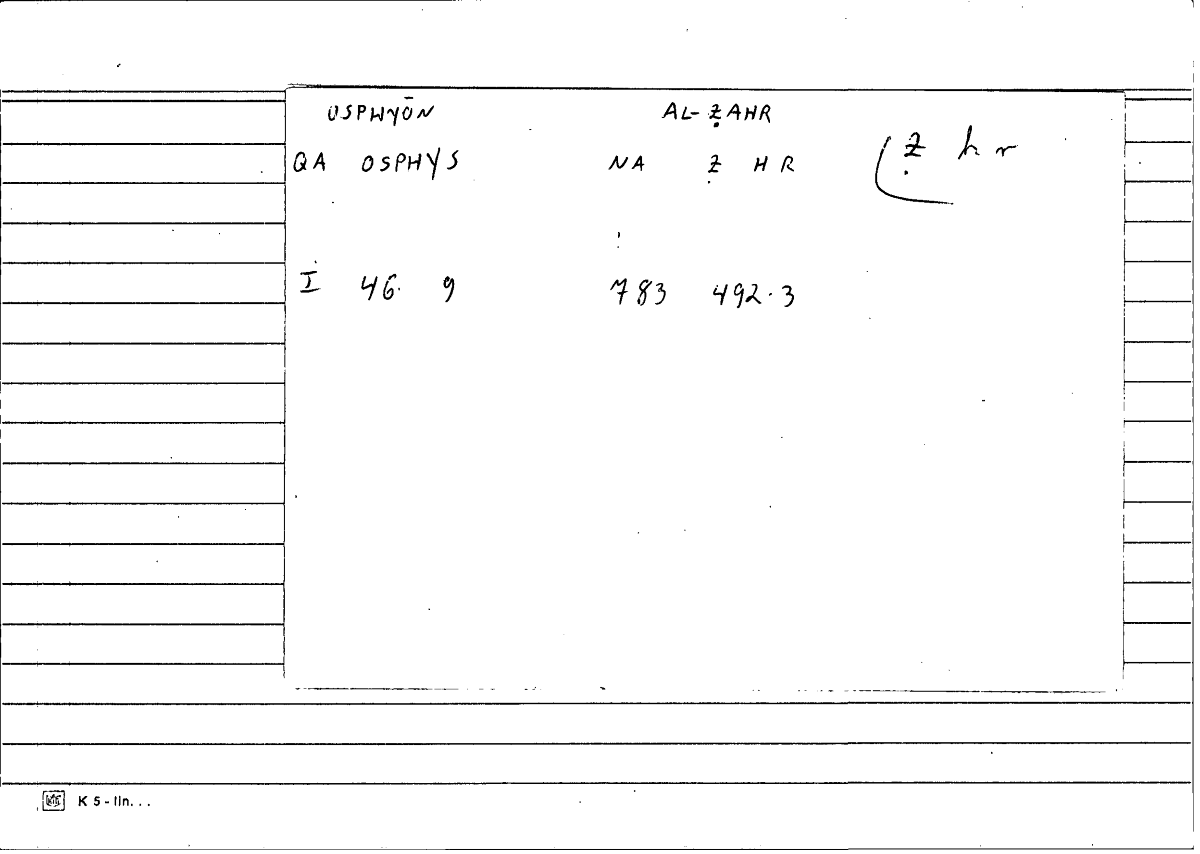 OSPHYŌN AL-ẒAHR
QA OSPHYS NA Ẓ H R
ẓ h r
I 46. 9 783 492.3
K 5 - lin...